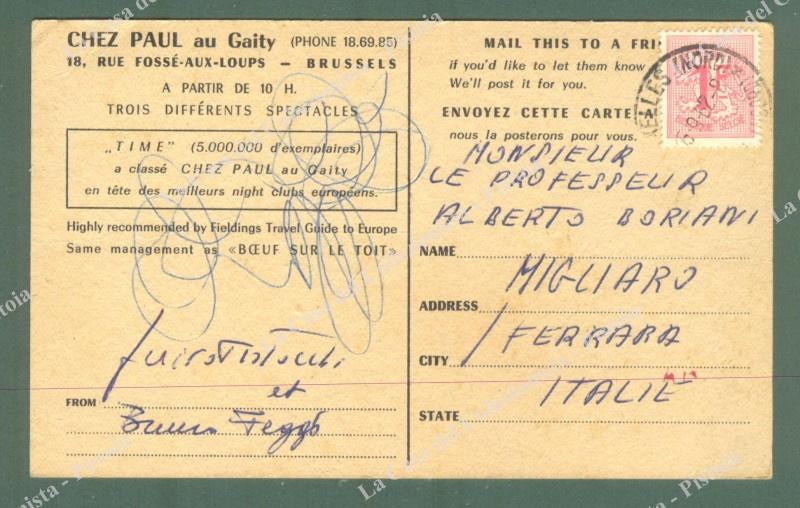 CHEZ PAUL au Gaity (PHONE 18.69.85)
18, RUE FOSSÉ-AUX-LOUPS – BRUSSELS
A PARTIR DE 10 H.
TROIS DIFFÉRENTS SPECTACLES
„TIME" (5.000.000 d'exemplaires)
a classé CHEZ PAUL au Gaity
en tête des meilleurs night clubs européens.
Highly recommended by Fieldings Travel Guide to Europe
Same management as «BŒUF SUR LE TOIT»
et
FROM
Bruno
MAIL THIS TO A
if you'd like to let them know
We'll post it for you.
ENVOYEZ CETTE CARTE A
nous la posterons pour vous.
MONSIEUR
LE PROFESSEUR
ALBERTO BORIANI
NAME
MIGLIARO
ADDRESS
FERRARA
CITY
ITALIE
STATE